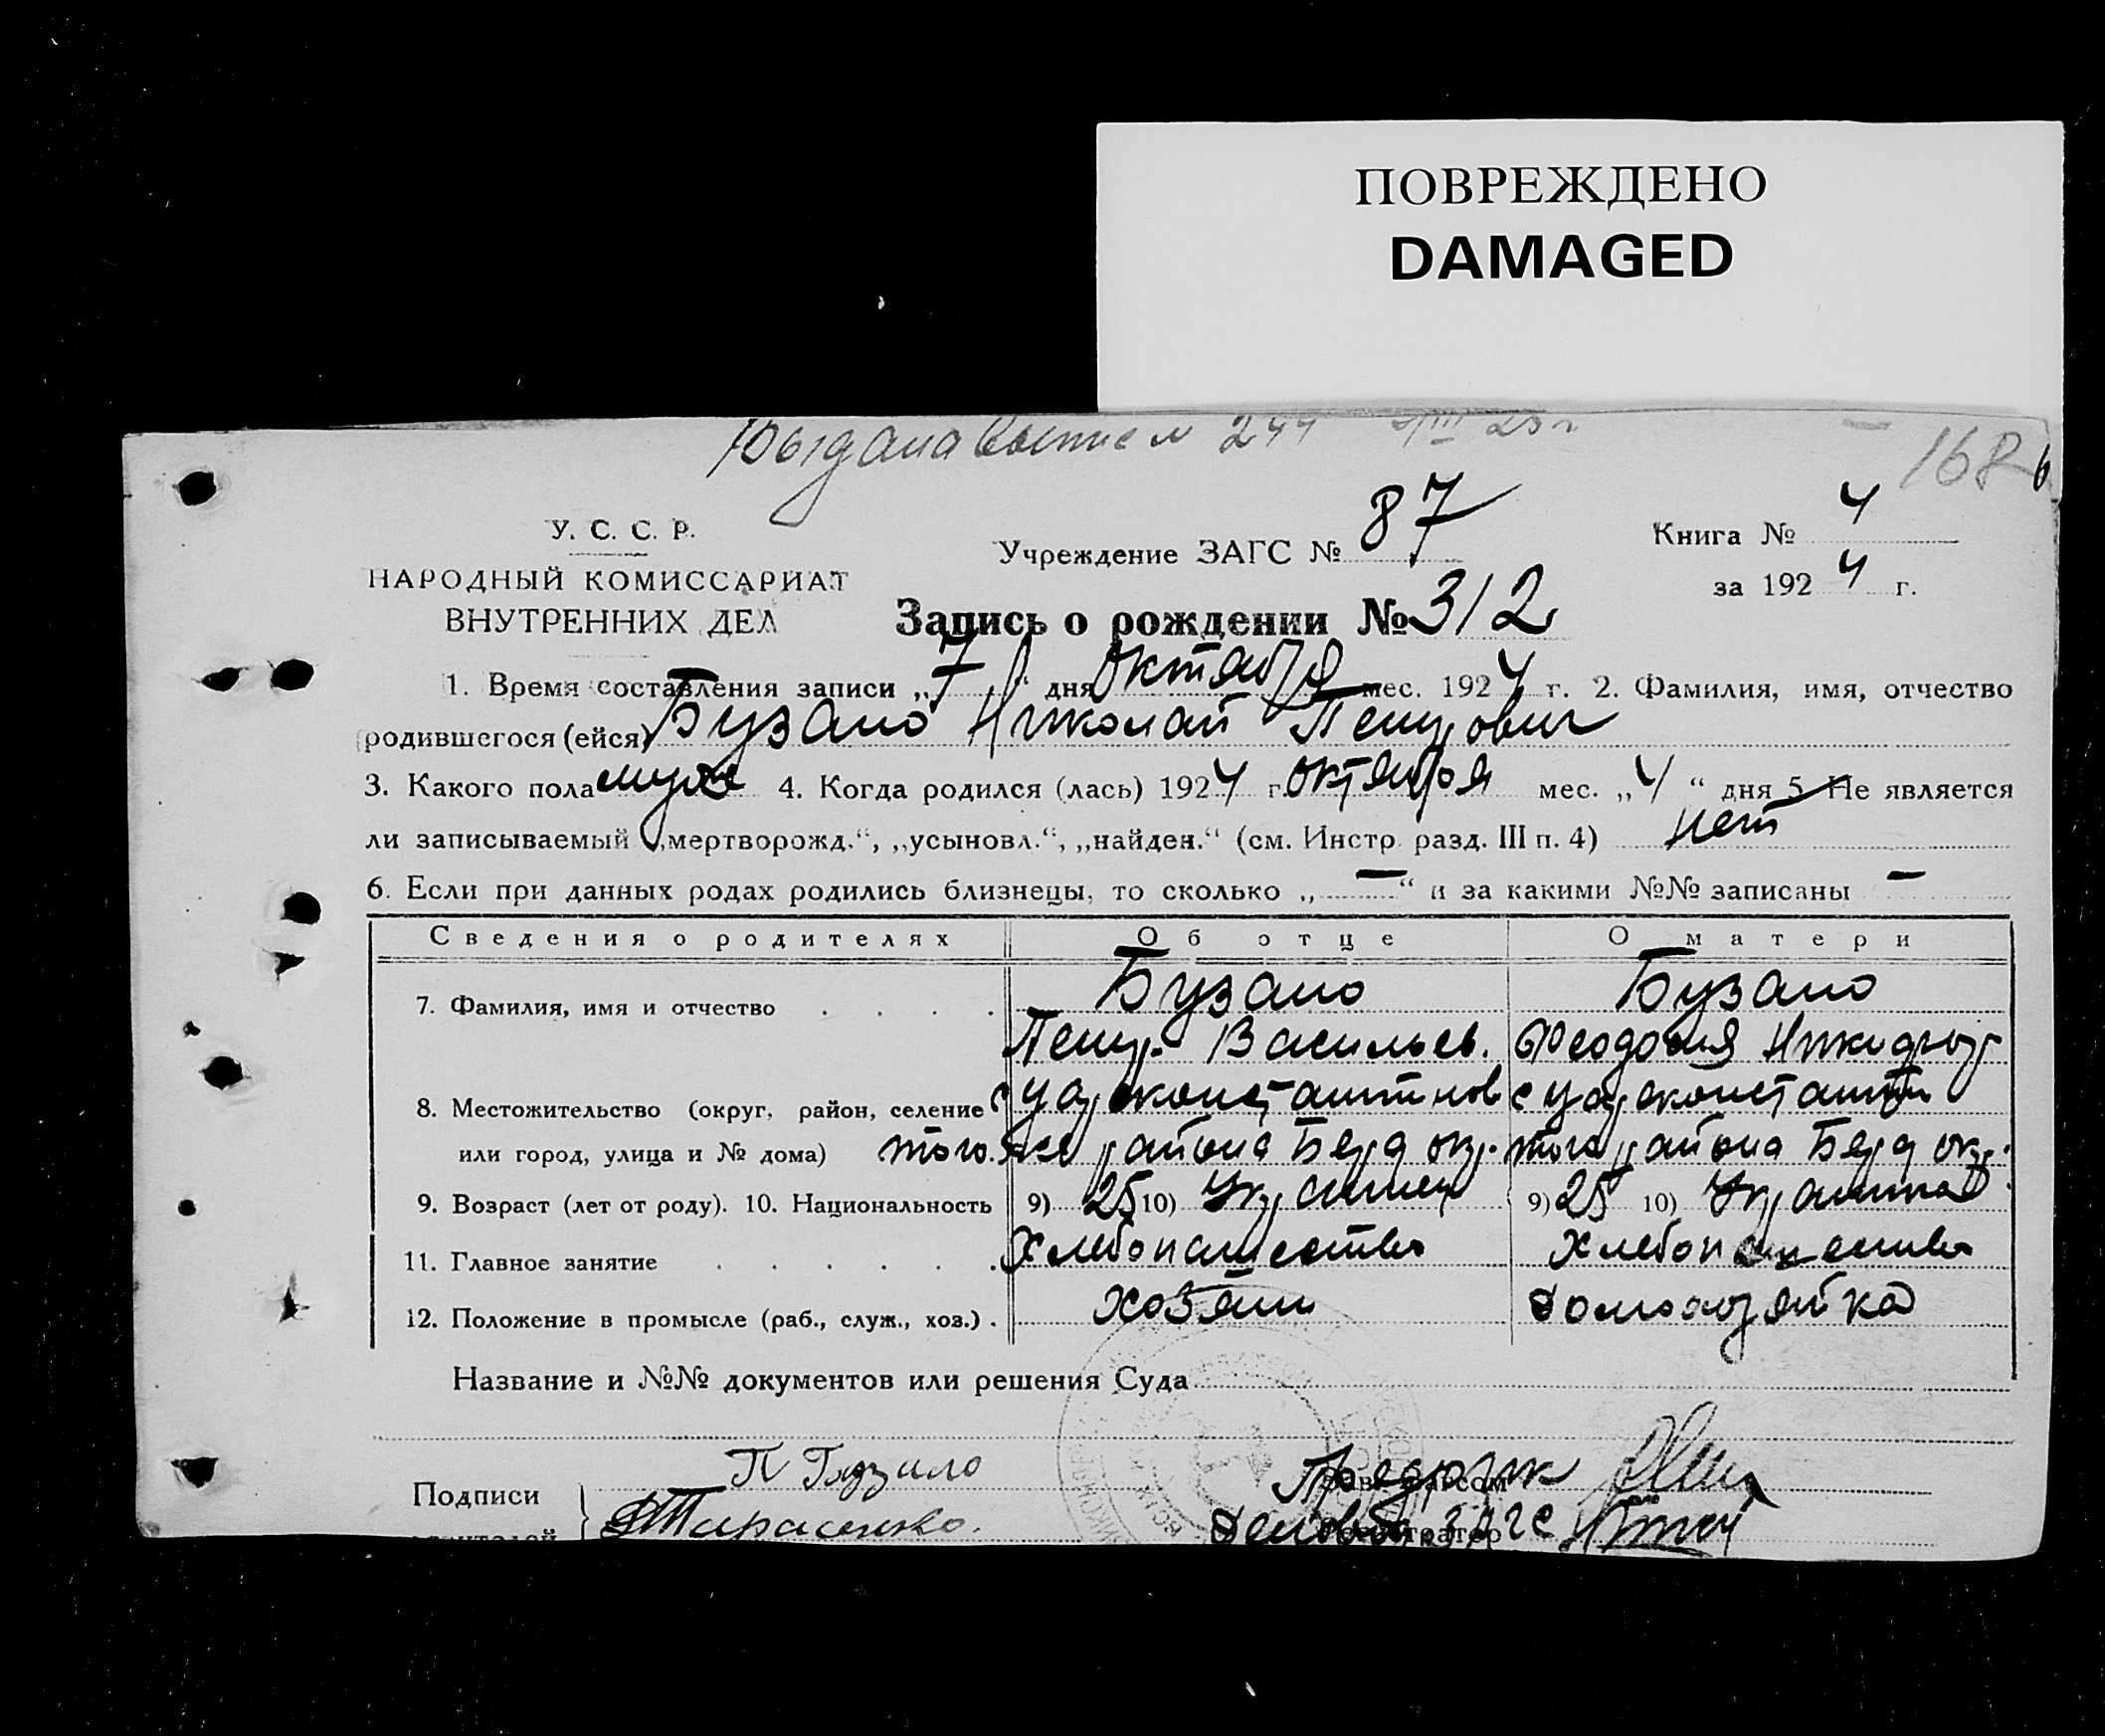 ПОВРЕЖДЕНО
DAMAGED
Выдана выпис № 244
168
У. С. С. Р.
НАРОДНЫЙ КОМИССАРИАТ
ВНУТРЕННИХ ДЕЛ
Учреждение ЗАГС № 87
Книга № 4
за 1924 г.
Запись о рождении № 312
1. Время составления записи „7“ дня октября мес. 1924 г. 2. Фамилия, имя, отчество
родившегося (ейся) Бузало Николай Петрович
3. Какого пола муж 4. Когда родился (лась) 1924 г. октября мес. „4“ дня 5. Не является
ли записываемый „мертворожд.“, „усыновл.“, „найден.“ (см. Инстр. разд. III п. 4) нет
6. Если при данных родах родились близнецы, то сколько „—“ и за какими №№ записаны —
Сведения о родителях Об отце О матери
7. Фамилия, имя и отчество . . . . Бузало Бузало
Петр Васильев. Феодосия Никифор
8. Местожительство (округ, район, селение с Цареконстантинов с Цареконстантин
или город, улица и № дома) того же района Берд окр. того района Берд окр.
9. Возраст (лет от роду). 10. Национальность 9) 25 10) Украинец 9) 25 10) Украинка
11. Главное занятие . . . . . . Хлебопашество Хлебопашество
12. Положение в промысле (раб., служ., хоз.) . хозяин домохозяйка
Название и №№ документов или решения Суда
Подписи П Бузало Предрик
Тарасенко. Делов ЗАГС